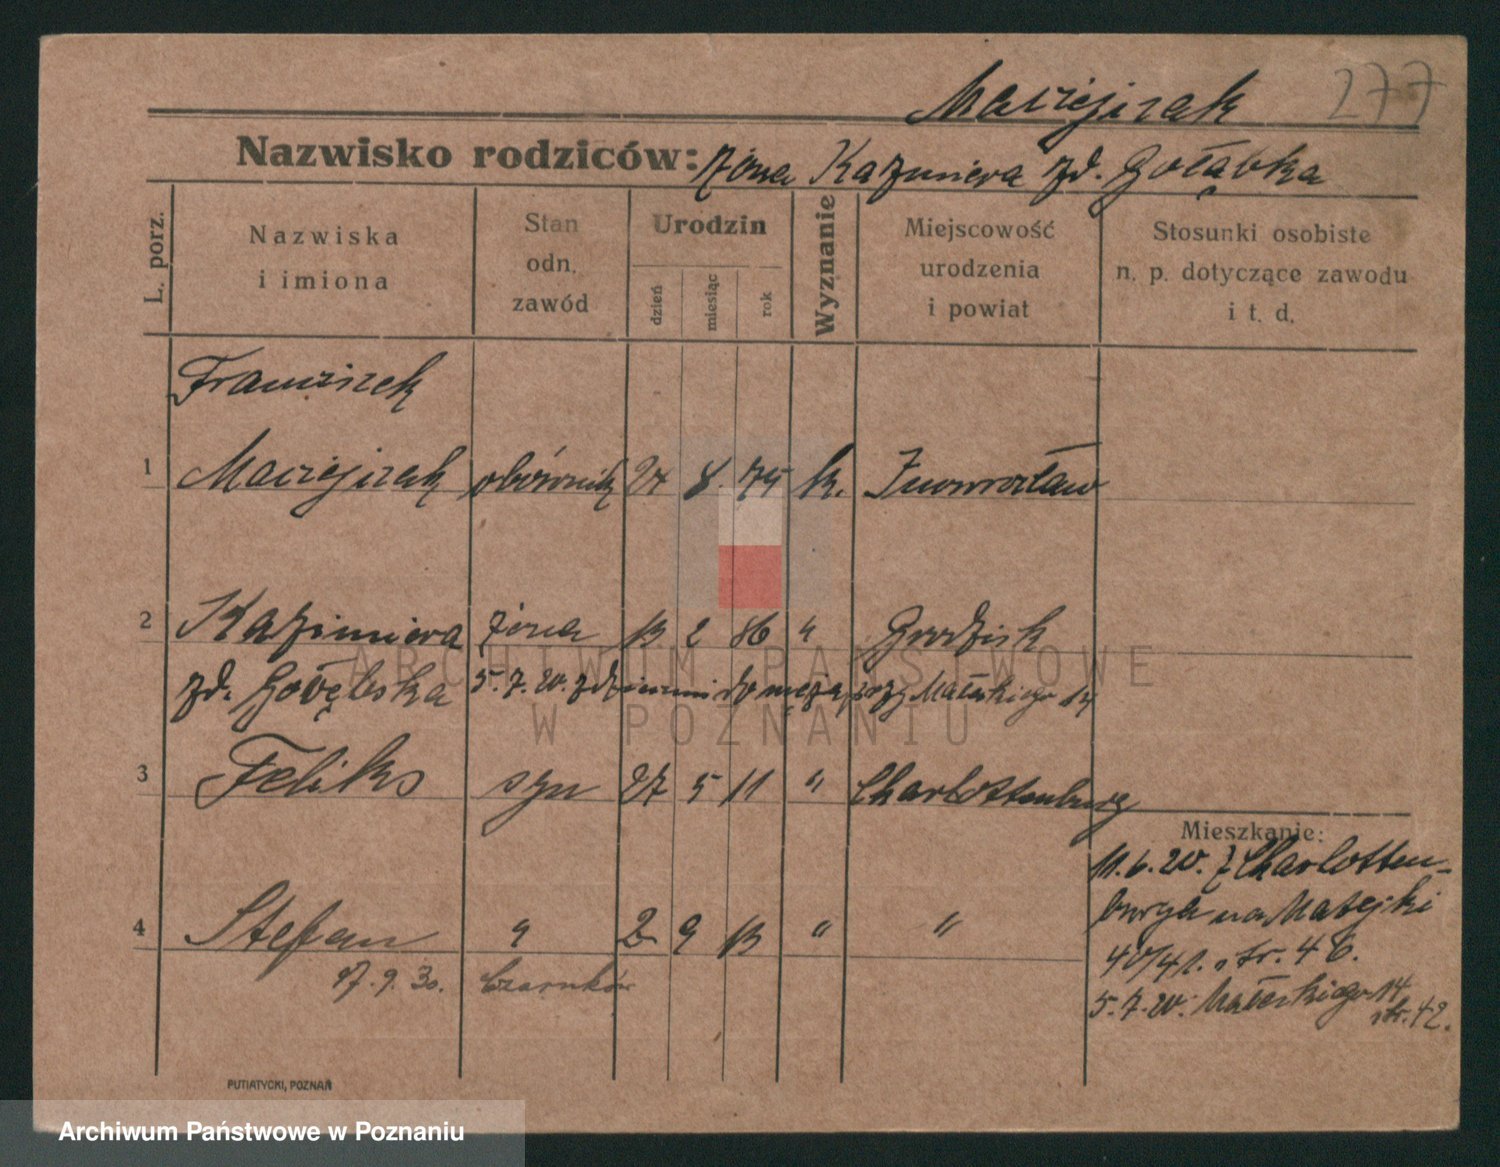 277
Maciejczak
Nazwisko rodziców: żona Kazimiera zd. Gołąbka
L. porz.
Nazwiska i imiona
Stan odn. zawód
Urodzin
dzień
miesiąc
rok
Wyznanie
Miejscowość urodzenia i powiat
Stosunki osobiste n. p. dotyczące zawodu i t. d.
Franciszek
1 Maciejczak obównik 27 8 75 k. Inowrocław
2 Kazimiera żona 13 2 86 " Grodzisk
zd. Gołębska 5.7.20. zdziemni do męża przy Małeckiego 14
3 Feliks syn 27 5 11 " Charlottenburg
Mieszkanie:
11.6.20. z Charlotten-
burga na Matejki
40/41. str. 46.
4 Stefan " 2 9 13 " "
17.9.30. Czarnków
5.7.20. Małeckiego 14
str. 42.
PUTIATYCKI, POZNAŃ
ARCHIWUM PAŃSTWOWE
W POZNANIU
Archiwum Państwowe w Poznaniu